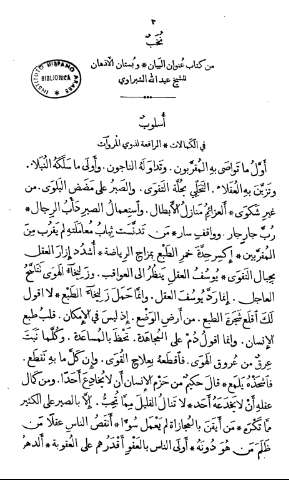 ٢
نُخَبٌ
من كتاب عنوان البيان * وبستان الاذهان
للشيخ عبد الله الشبراوي
INSTITUTO HISPANO ARABE
BIBLIOTECA
أسلوب
في الكمالات * الرافعة لذوي المروآت
أَوَّل ما تواصى به المقرّبون. وتداوله الناجون. وأولى ما سلكه النبلاء.
وتزيّن به العقلاء. التحلّي بحلّة التقوى. والصبر على مضض البلوى. من
غير شكوى * العزائم منازل الابطال. واستعمال الصبر دأب الرجال *
ربّ جارٍ جار. وواقفٍ سار * من تدنّست ثياب معاملته لم يقرب من
المقرّبين * اكسر حدّة خمر الطبع بمزاج الرياضة * أُشدد إزار العقل
بحبال التقوى * يوسف العقل ينظر الى العواقب. وزليخاء الهوى تتلمح
العاجل. انما ردّ يوسف العقل. وانما حمل زليخاء الطبع * لا اقول
لك اقلع شجرة الطبع. من أرض الوضع. إذ ليس في الامكان. قلب طبع
الانسان. وانما اقول دُم على المجاهدة. تحظَ بالمساعدة * وكلّما نبت
عرق من عروق الهوى. فأقطعه بعلاج القوى. وإن كلّ ما به تقطع.
فأشحذه يلمع * قال حكيم من حزم الانسان أن لا يخادع أحدًا. ومن كمال
عقله أن لا يخدعه أحد * لا تنال القليل مما تحبّ. إلّا بالصبر على الكثير
مما تكره * من أيقن بالمجازاة لم يعمل سوءًا * أنقص الناس عقلًا من
ظلم من هو دونه * أولى الناس بالعفو أقدرهم على العقوبة * الدهر